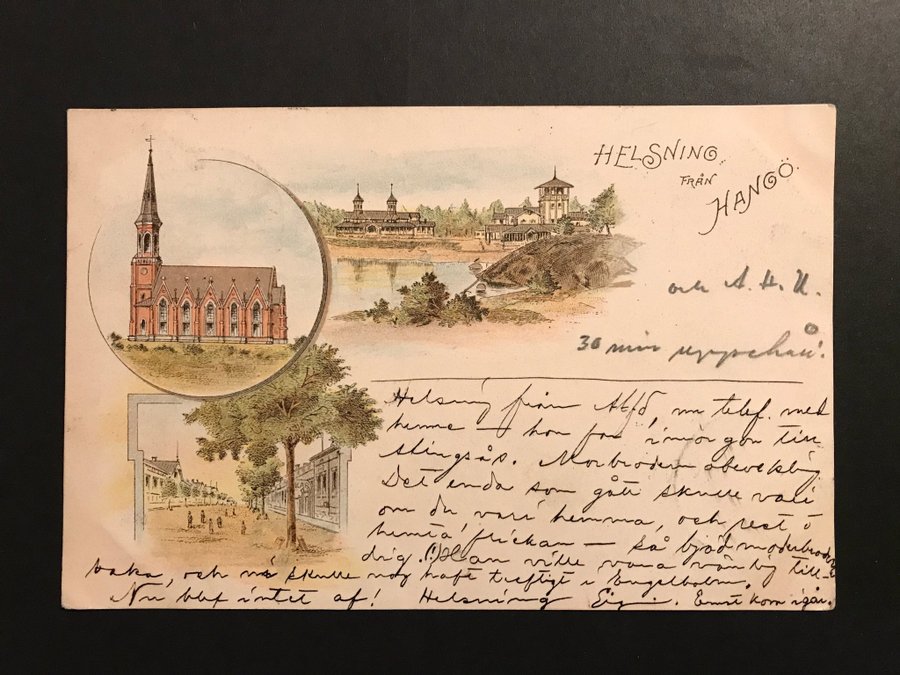 HELSNING
FRÅN
HANGÖ.
och A. H. U.
30 min uppehåll!
Helsning från Atfd, nu telef. med
henne — hon for i morgon till
Alingsås. Morbrodern obeveklig
Det enda som gått skulle vara
om du vari hemma, och rest o
hemta flickan — så bjöd morbrodern
dig. (!) Han ville vara vänlig till-
baka, och ni skulle nog hafa träffats i Engelholm.
Nu blef intet af! Helsning Ernst kom igår.